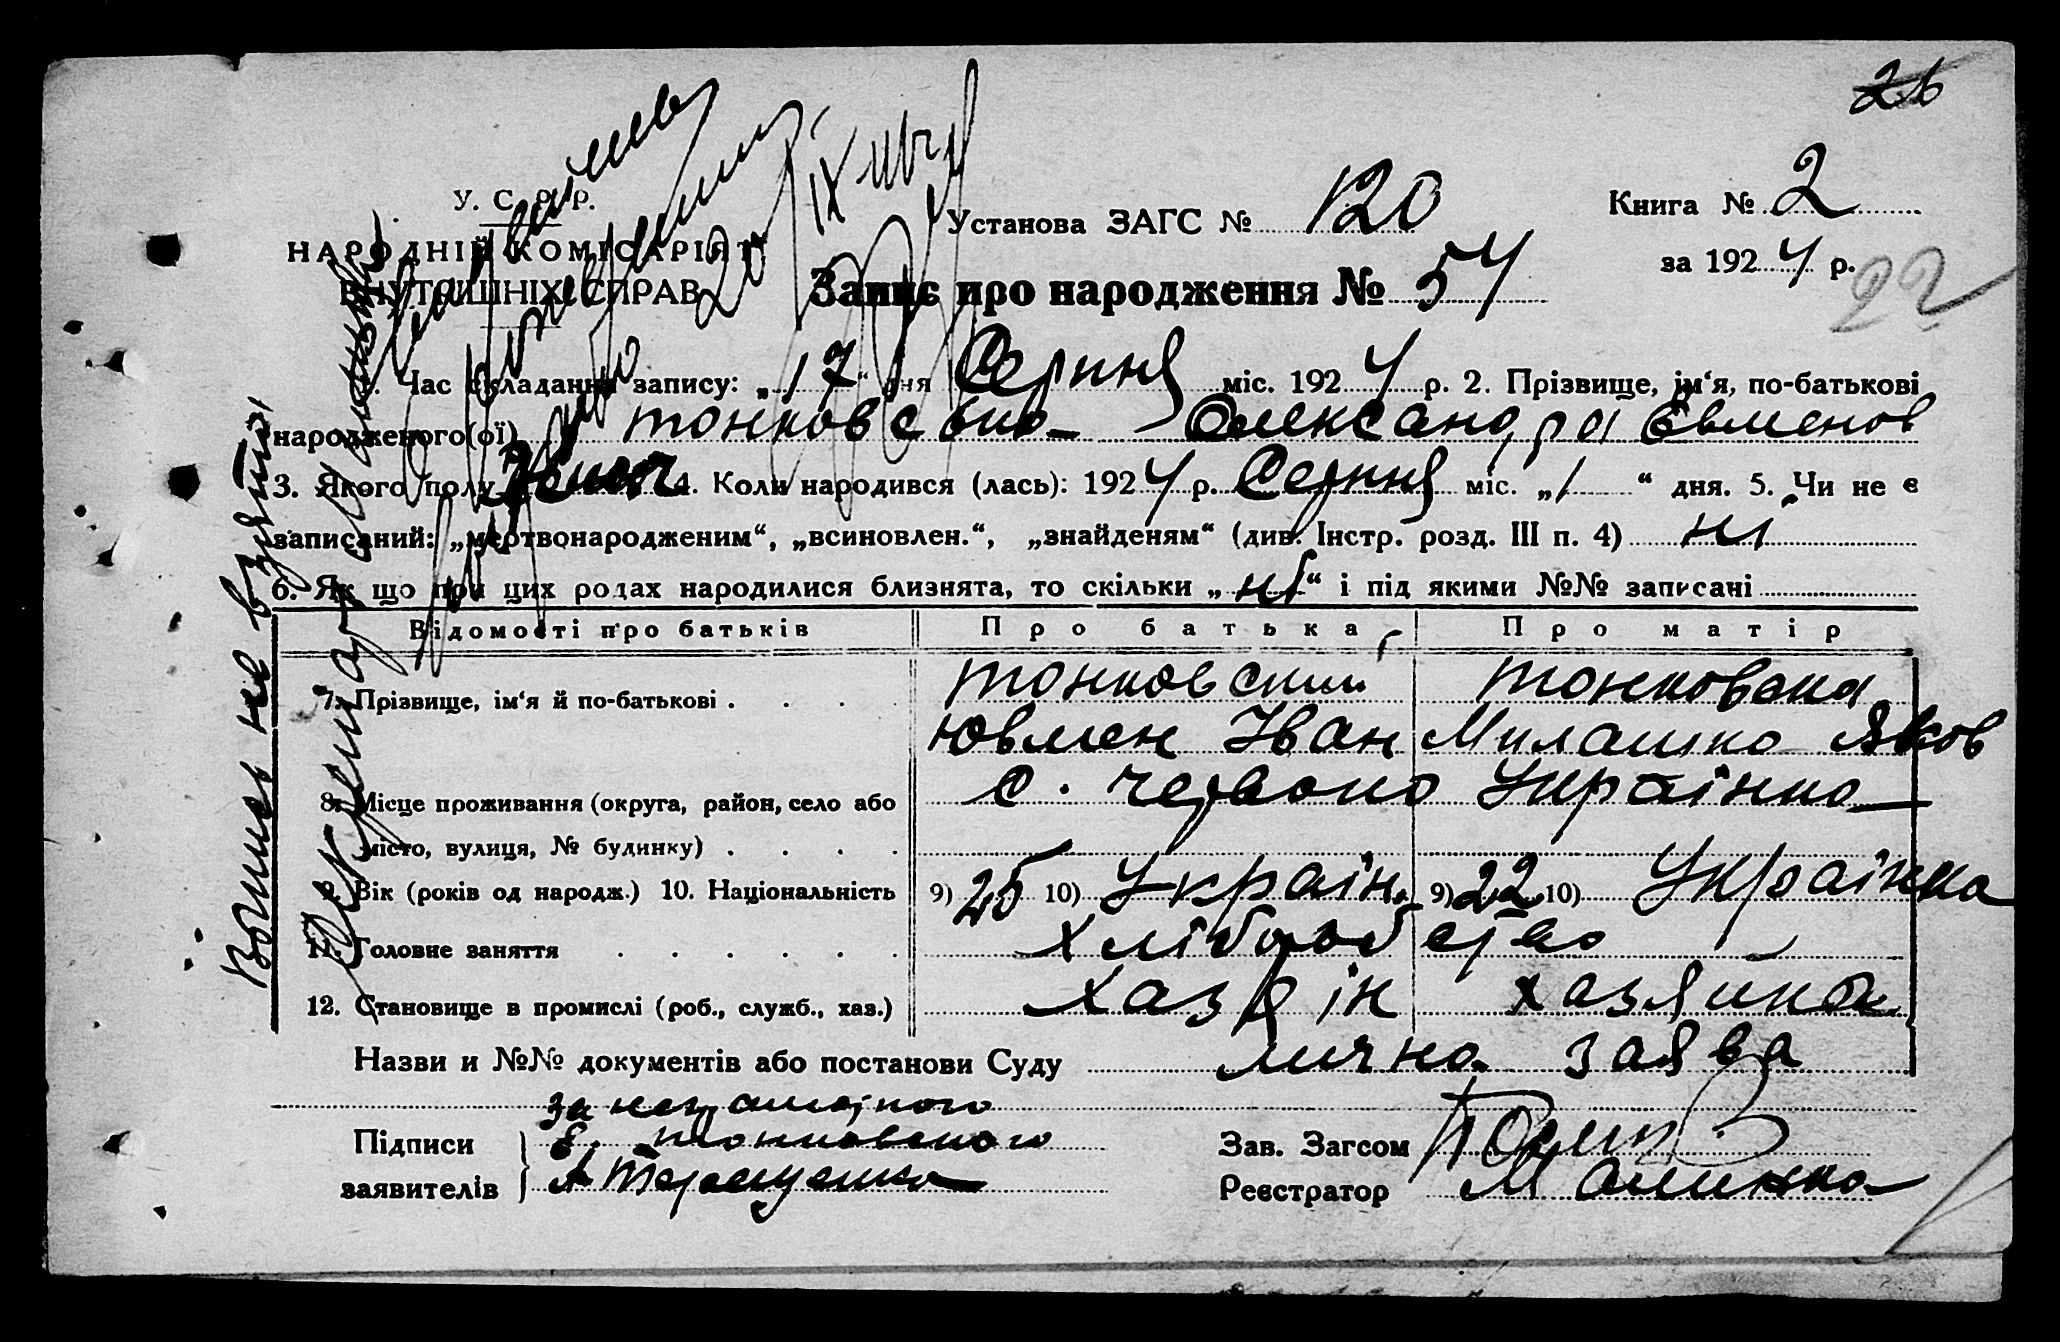 26
У. С. Р. Р.
НАРОДНІЙ КОМІСАРІЯТ
ВНУТРІШНІХ СПРАВ
Установа ЗАГС № 120
Книга № 2
за 1924 р.
22
Запис про народження № 54
1. Час складання запису: „17“ дня Серпня міс. 1924 р. 2. Прізвище, ім‘я, по-батькові
народженого(ої) Тонковсько Олександра Євменов
3. Якого полу Жіноч 4. Коли народився (лась): 1924 р. Серпня міс. „1“ дня. 5. Чи не є
записаний: „мертвонародженим“, „всиновлен.“, „знайденям“ (див. Інстр. розд. III п. 4) ні
6. Як що при цих родах народилися близнята, то скільки „ні“ і під якими №№ записані
Відомості про батьків Про батька Про матір
7. Прізвище, ім‘я й по-батькові Тонковский Тонковска
Ювмен Іван Милашко Яков
8. Місце проживання (округа, район, село або с. Червоно Українко
місто, вулиця, № будинку)
9. Вік (років од народж.) 10. Національність 9) 25 10) Україн. 9) 22 10) Українка
11. Головне заняття Хліборобство
12. Становище в промислі (роб., служб., хаз.) хазяїн хазяйка
Назви и №№ документів або постанови Суду лична заява
за неграмотного
Підписи Є. Тонковського
заявителів А Терещенко
Зав. Загсом
Реєстратор Малинка
Вопись не взята
Секретар